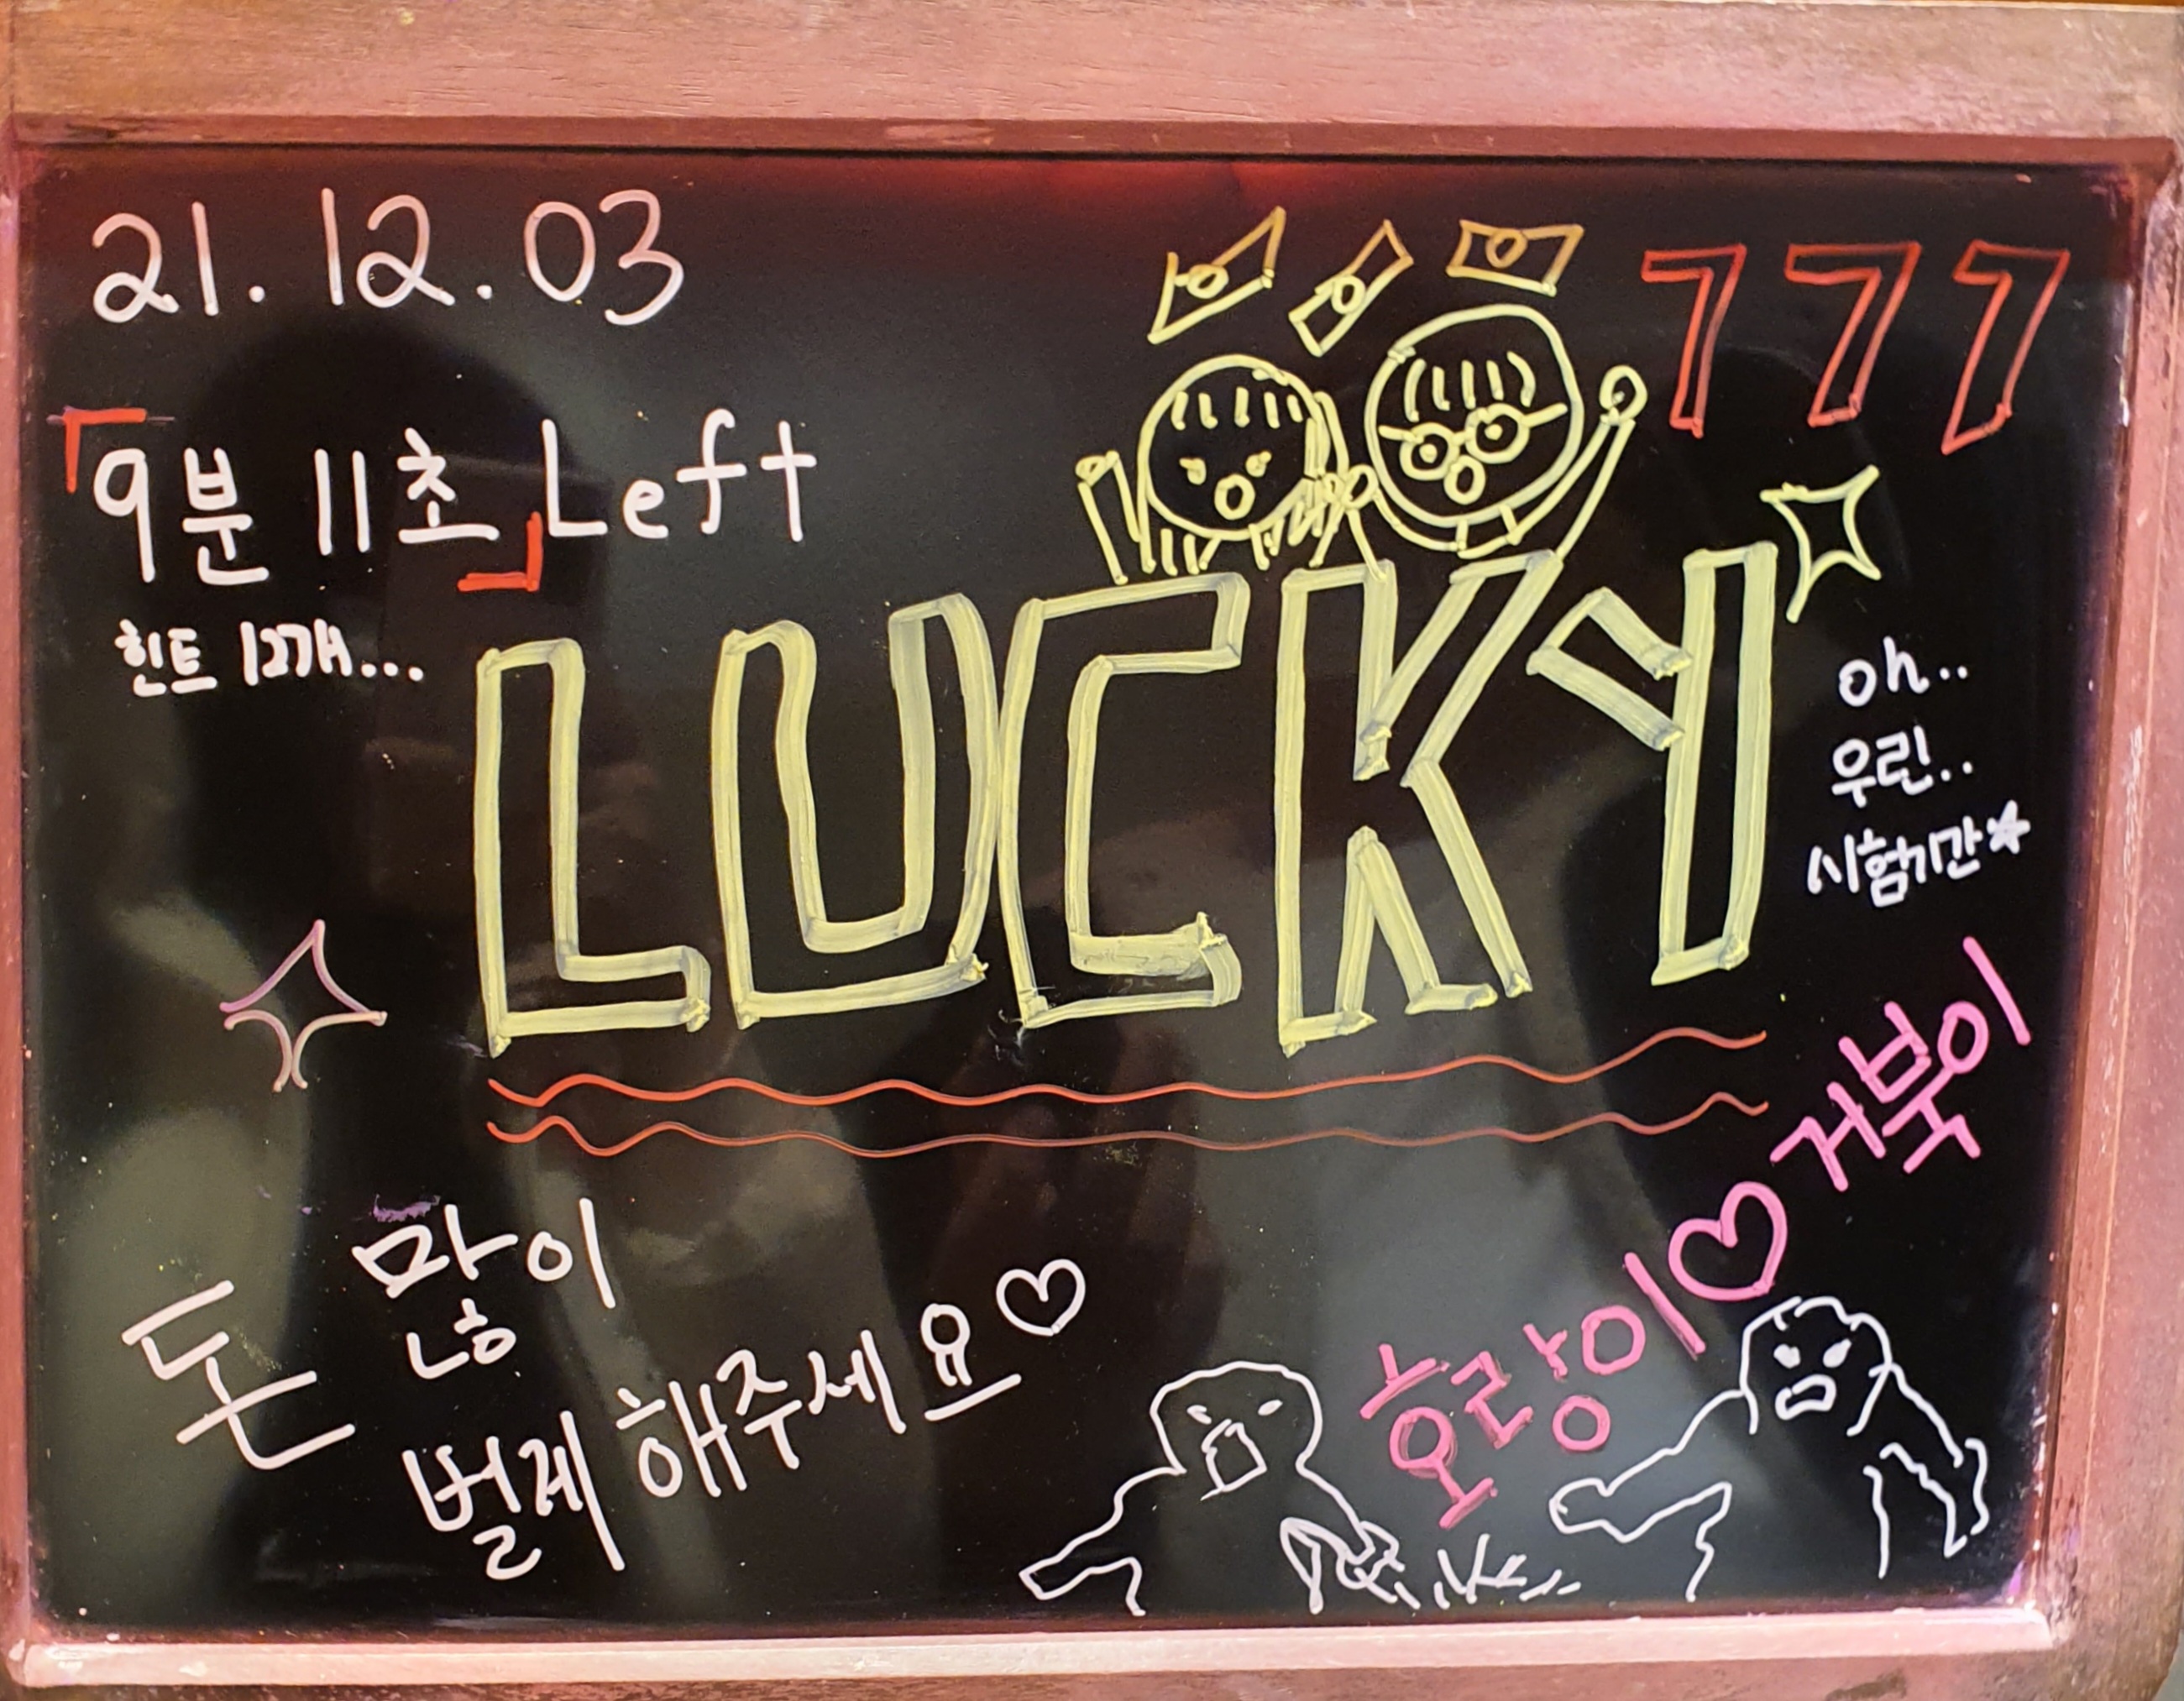 21.12.03
777
「9분 11초」Left
힌트 12개...
LUCKY
oh..
우린..
시험기간★
돈 많이
벌게 해주세요♡
호랑이♡거북이